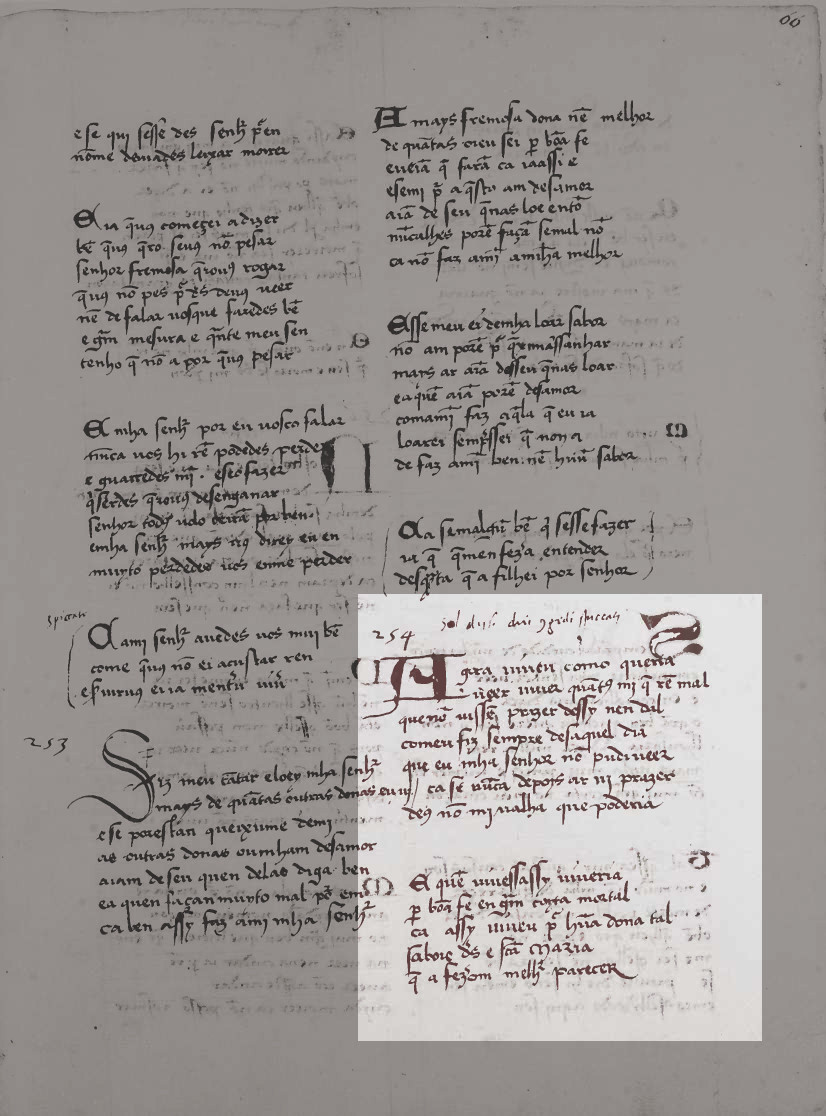 66
e se qui sesse des senhʳ p̃ en
nome deuades leixar morrer
Ca ia q̃ uꝯ começei a dizer
bẽ q̃ uꝯ q̃ro seuꝯ nõ pesar
senhor fremosa q̃rouꝯ rogar
q̃ uꝯ nõ pes p̃ dꝭ deuꝯ ueer
nẽ de falar uosque faredes bẽ
e gm̃ mesura e q̃nte meu sen
tenho q̃ nõ a por q̃ uꝯ pesar
Ca mha senhʳ por eu uosco falar
nũca uos hi rẽ podedes perder
e guarredes mĩ . e se o fazer
q̃serdes q̃rouꝯ desenganar
senhor todꝯ uolo terrã por ben
emha senhʳ mays uꝯ direy eu en
muyto perdedes uos en me perder
Ca ami senhʳ auedes uos mui bẽ
come q̃ uꝯ nõ ei a custar ren
e seruiruꝯ ei ia mentr̃ uiu̾
253
Fiz meu cãtar e loey mha senhʳ
mays de quãtas outras donas eu uj
e se por est an queixume demi
as outras donas ou mham desamor
aiam de seu quen delas diga ben
ea quen façan muyto mal pꝭ em
ca ben assy faz ami mha senhʳ
A mays fremosa dona nẽ melhor
de quãtas oieu sei per bõa fe
e ueiã q̃ farã ca ia assi e
e se mi p̃ aq̃sto am desamor
aiã de seu q̃ nas loe entõ
mĩcalhes porẽ façã semul nõ
ca nõ faz ami amilha melhor
E sse meu ei de mha loar sabor
nõ am porẽ p̃ q̃xe mi assanhar
mays ar aiã desseu q̃ nas loar
ea quẽ aiã porẽ desamor
comamĩ faz aq̃la q̃ eu ia
loarei sempꝭssei q̃ non a
de faz amĩ ben nẽ hũu sabor
Ca se malgũ bẽ q̃sesse fazer
ia q̃ q̃men fezꝭa entender
desq̃sta q̃ a filhei por senhor
254
A gora uiueu como querria
ueer uiuer quãtꝯ mi q̃rẽ mal
que nõ uissẽ prazer dessy nen dal
comeu fiz sempre desaquel dia
que eu mha senhor nõ pudi ueer
ca se nũca depois ar ui prazer
deꝯ nõ mi ualha que poderia
E quẽ uiuessassy uiueria
per bõa fe en gm̃ coyta mortal
ca assy uiueu p̃ hũa dona tal
sabore dꝭ e scã Maria
q̃ a fezꝭom melhʳ parecer